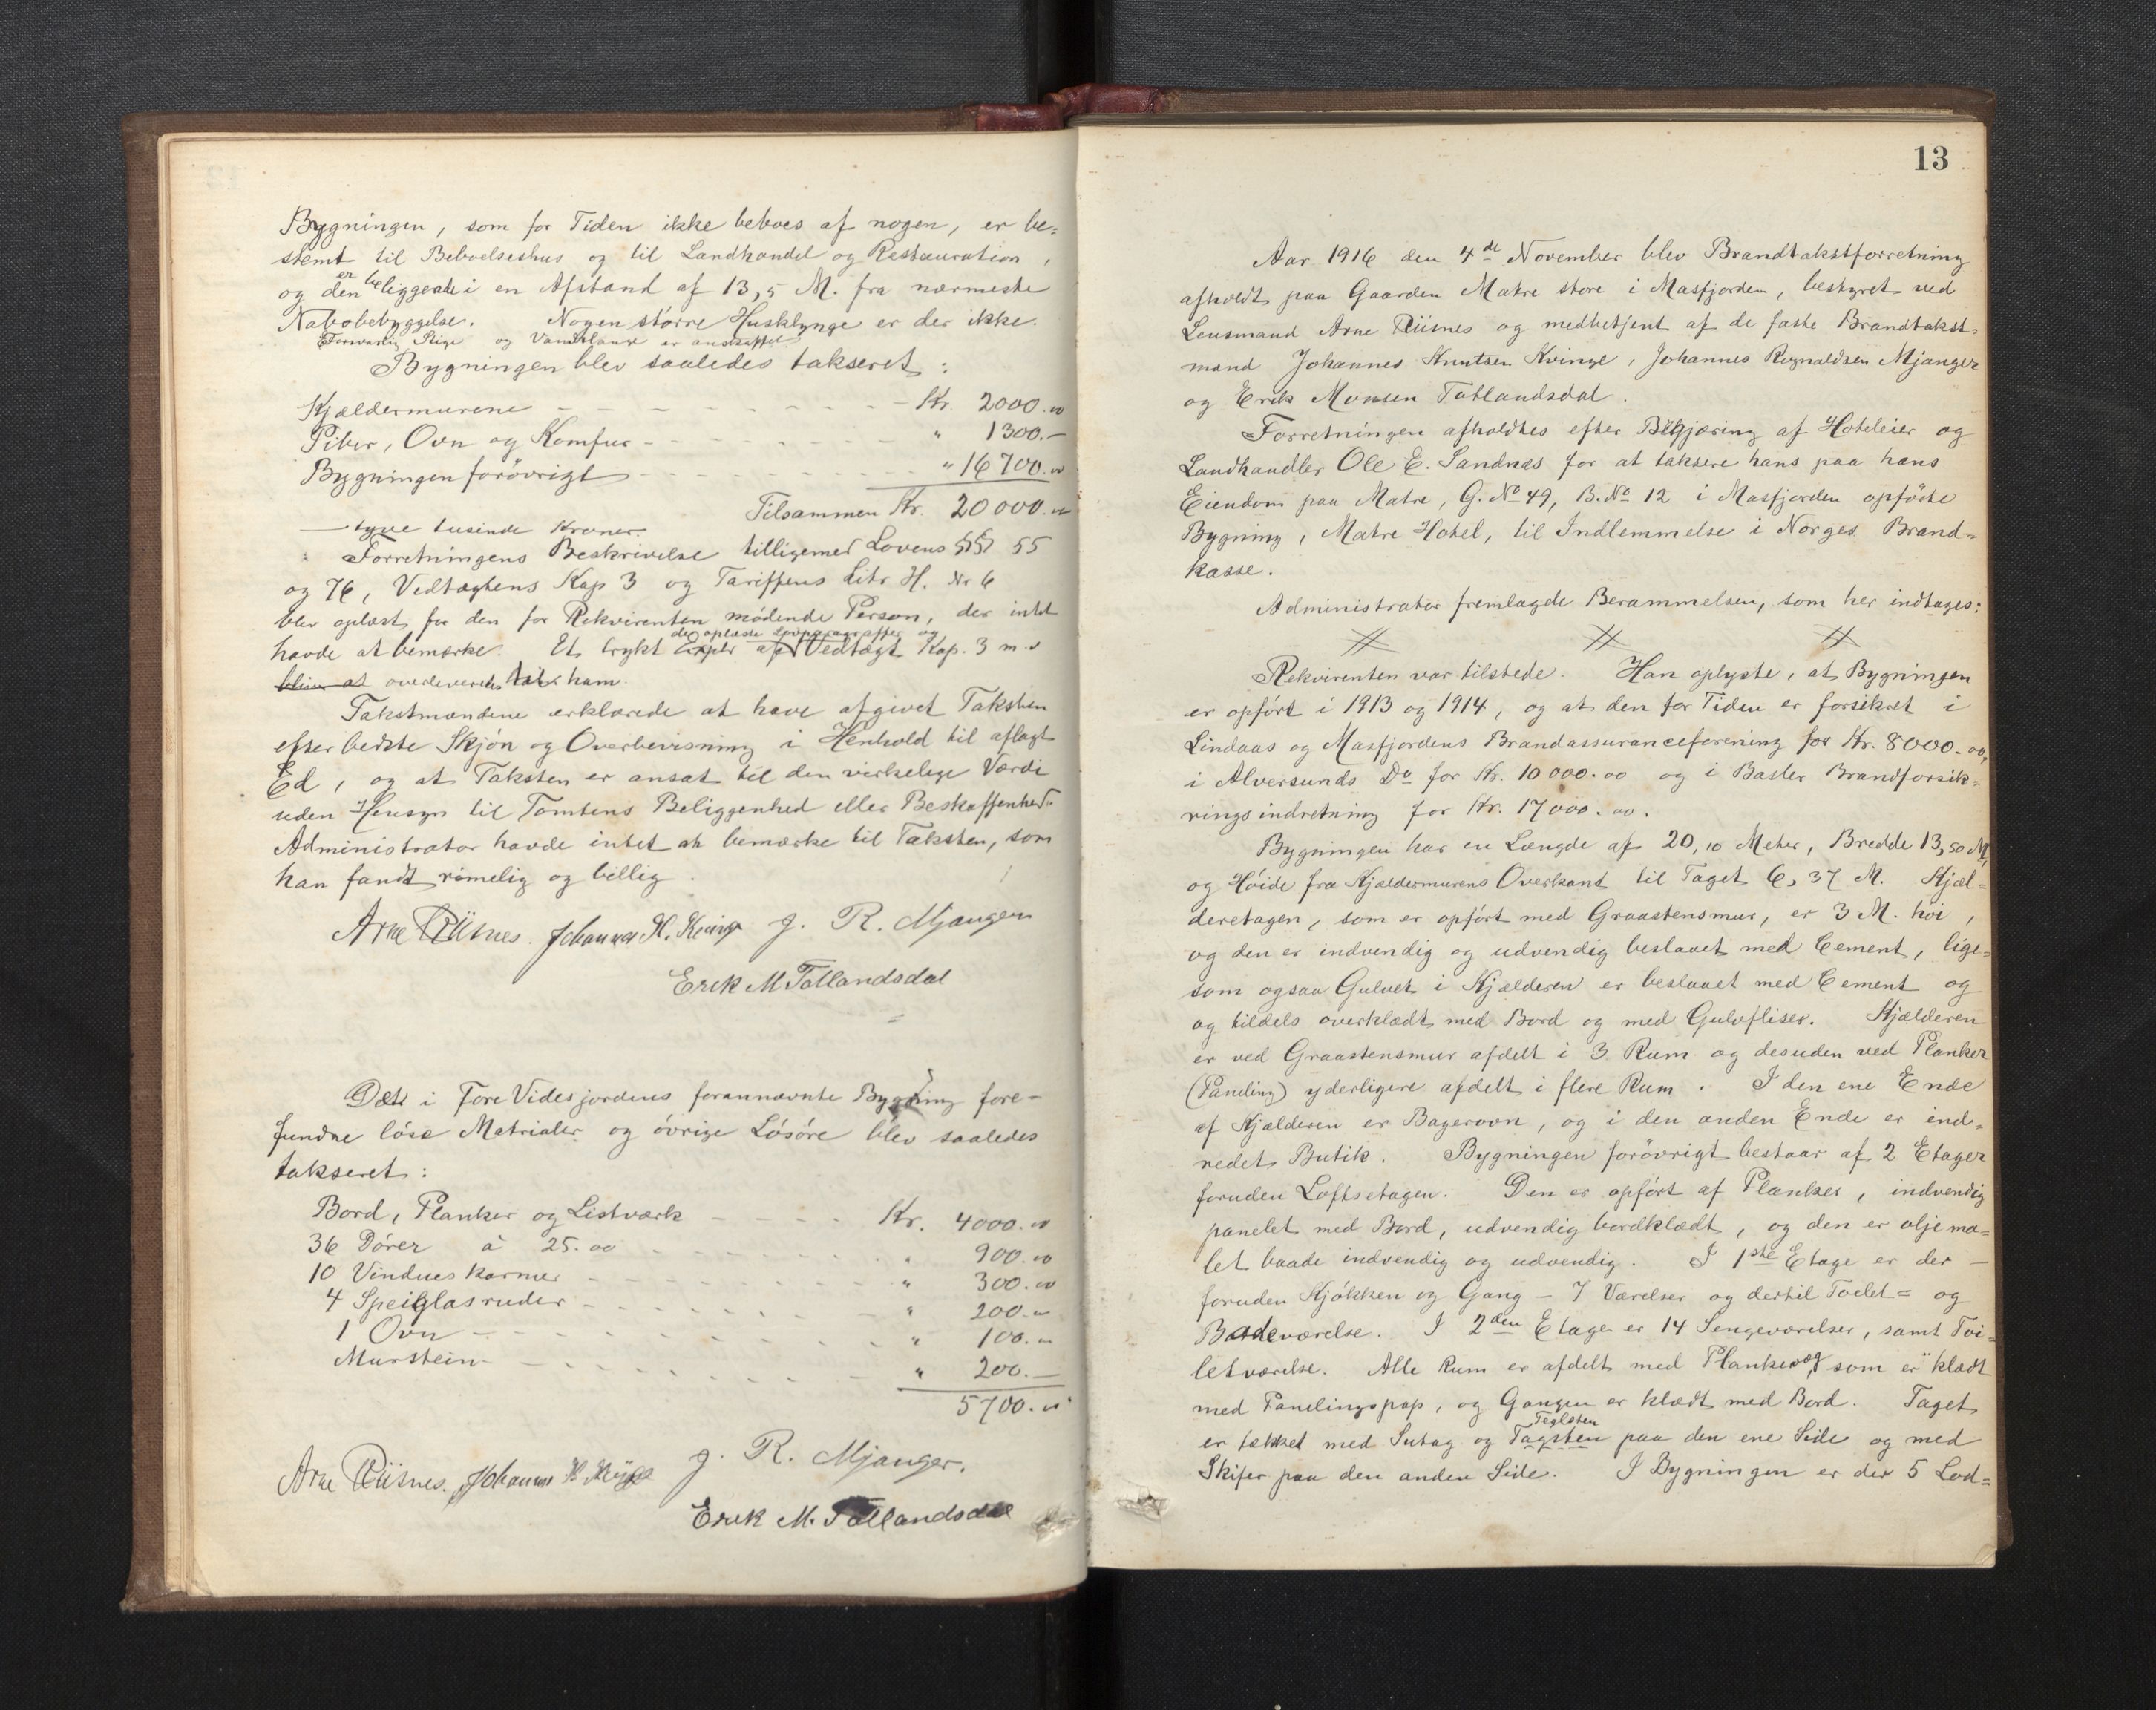 Bygningen, som for Tiden ikke beboes af nogen, er be=
stemt til Beboelseshus og til Landhandel og Restauration,
og den er beliggende i en Afstand af 13,5 M. fra nærmeste
Nabobebyggelse. Nogen större Husklynge er der ikke.
Forsvarlig Stige og Vandslange er anskaffet
Bygningen blev saaledes takseret:
Kjældermurene Kr. 2000.00
Piber, Ovn og Komfur " 1300.—
Bygningen forövrigt " 16700.00
Tilsammen Kr. 20000.00
— tyve tusinde Kroner.
Forretningens Beskrivelse tilligemed Lovens §§ 55
og 76, Vedtægtens Kap 3 og Tariffens Litr. H. Nr 6
blev oplæst for den for Rekvirenten mödende Person, der intet
havde at bemærke. Et trykt Explr af de oplæste Lovparagraffer og Vedtægt Kap. 3 m.v
blev at overleveret ham.
Takstmændene erklærede at have afgivet Taksten
efter bedste Skjön og Overbevisning i Henhold til aflagt
Ed, og at Taksten er ansat til den virkelige Værdi
uden Hensyn til Tomtens Beliggenhed eller Beskaffenhed.
Administrator havde intet at bemærke til Taksten, som
han fandt rimelig og billig.
Arne Riisnes. Johannes K. Kvinge J. R. Mjanger
Erik M Tatlandsdal
Det i Tore Videsjordens forannævnte Bygning fore-
fundne löse Matrialer og övrige Lösöre blev saaledes
takseret:
Bord, Planker og Listværk Kr. 4000.00
36 Dörer à 25.00 " 900.00
10 Vindueskarmer " 300.00
4 Speilglasruder " 200.00
1 Ovn " 100.00
Murstein " 200.—
5700.00
Arne Riisnes. Johannes K. Kvinge J. R. Mjanger.
Erik M. Tatlandsdal
13
Aar 1916 den 4de November blev Brandtakstforretning
afholdt paa Gaarden Matre store i Masfjorden, bestyret ved
Lensmand Arne Riisnes og medbetjent af de faste Brandtakst=
mænd Johannes Knutsen Kvinge, Johannes Rognaldsen Mjanger
og Erik Monsen Tatlandsdal.
Forretningen afholdtes efter Begjæring af Hoteleier og
Landhandler Ole E. Sandnæs for at taksere hans paa hans
Eiendom paa Matre, G. No 49, B. No 12 i Masfjorden opförte
Bygning, Matre Hotel, til Indlemmelse i Norges Brand=
kasse.
Administrator fremlagde Berammelsen, som her indtages:
# # #
Rekvirenten var tilstede. Han oplyste, at Bygningen
er opfört i 1913 og 1914, og at den for Tiden er forsikret i
Lindaas og Masfjordens Brandassuranceforening for Kr. 8000.00,
i Alversunds Do for Kr. 10000.00 og i Basler Brandforsik=
ringsindretning for Kr. 17000.00.
Bygningen har en Længde af 20,10 Meter, Bredde 13,50 M,
og Höide fra Kjældermurens Overkant til Taget 6,37 M. Kjæl=
deretagen, som er opfört med Graastensmur, er 3 M. höi,
og den er indvendig og udvendig beslaaet med Cement, lige=
som ogsaa Gulvet i Kjælderen er beslaaet med Cement og
og tildels overklædt med Bord og med Gulvfliser. Kjælderen
er ved Graastensmur afdelt i 3 Rum og desuden ved Planker
(Paneling) yderligere afdelt i flere Rum. I den ene Ende
af Kjælderen er Bagerovn, og i den anden Ende er ind=
redet Butik. Bygningen forövrigt bestaar af 2 Etager
foruden Loftsetagen. Den er opfört af Planker, indvendig
panelet med Bord, udvendig bordklædt, og den er oljema=
let baade indvendig og udvendig. I 1ste Etage er der —
foruden Kjökken og Gang — 7 Værelser og dertil Toilet= og
Badeværelse. I 2den Etage er 14 Sengeværelser, samt Toi=
letværelse. Alle Rum er afdelt med Plankevæg, som er klædt
med Panelingspap, og Gangen er klædt med Bord. Taget
er tækket med Sutag og Tagsten Teglsten paa den ene Side og med
Skifer paa den anden Side. I Bygningen er der 5 Lod=